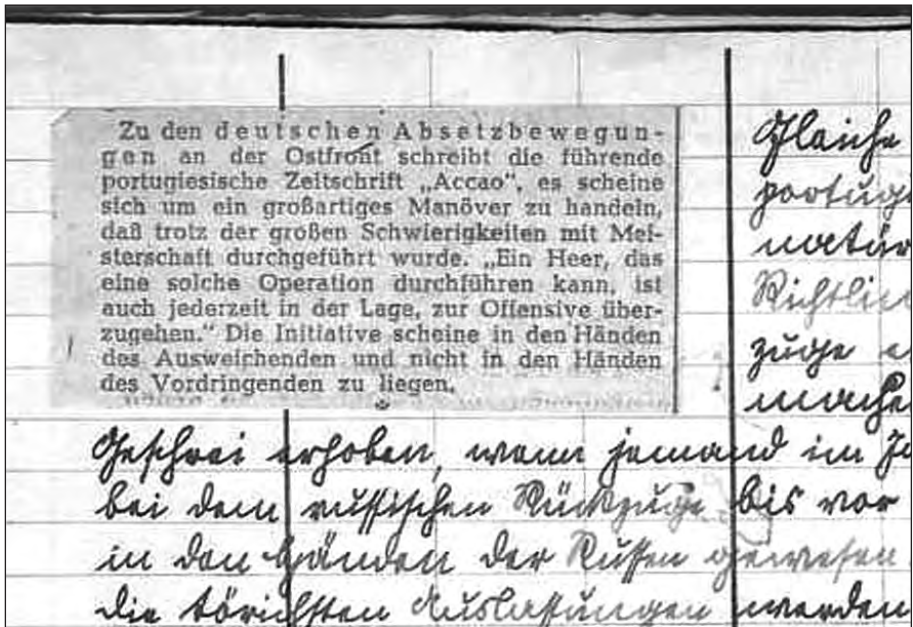 Zu den deutschen Absetzbewegun-
gen an der Ostfront schreibt die führende
portugiesische Zeitschrift „Accao“, es scheine
sich um ein großartiges Manöver zu handeln,
daß trotz der großen Schwierigkeiten mit Mei-
sterschaft durchgeführt wurde. „Ein Heer, das
eine solche Operation durchführen kann, ist
auch jederzeit in der Lage, zur Offensive über-
zugehen.“ Die Initiative scheine in den Händen
des Ausweichenden und nicht in den Händen
des Vordringenden zu liegen.
Gleiche
portug
natür
Richtlin
zuge
mache
Geschrei erhoben, wenn jemand im Ja
bei dem russischen Rückzuge bis vor
in den Händen der Russen gewesen
die törichsten Auslassungen werden